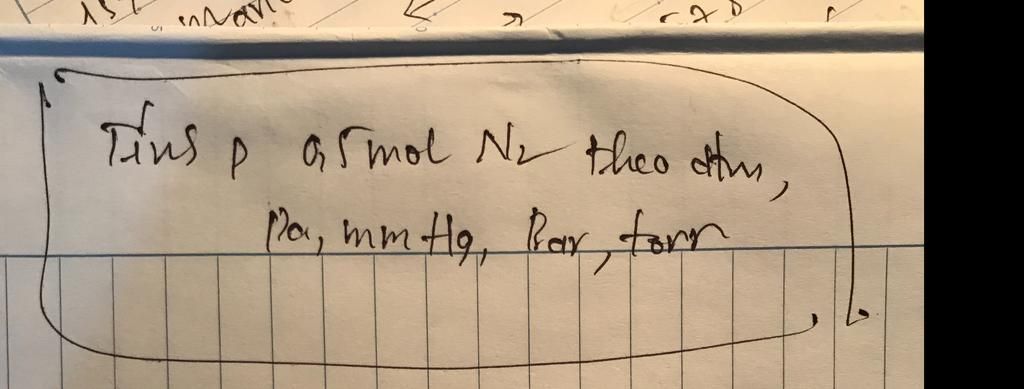 Tính p 0,5 mol N2 theo atm,
Pa, mmHg, Bar, torr